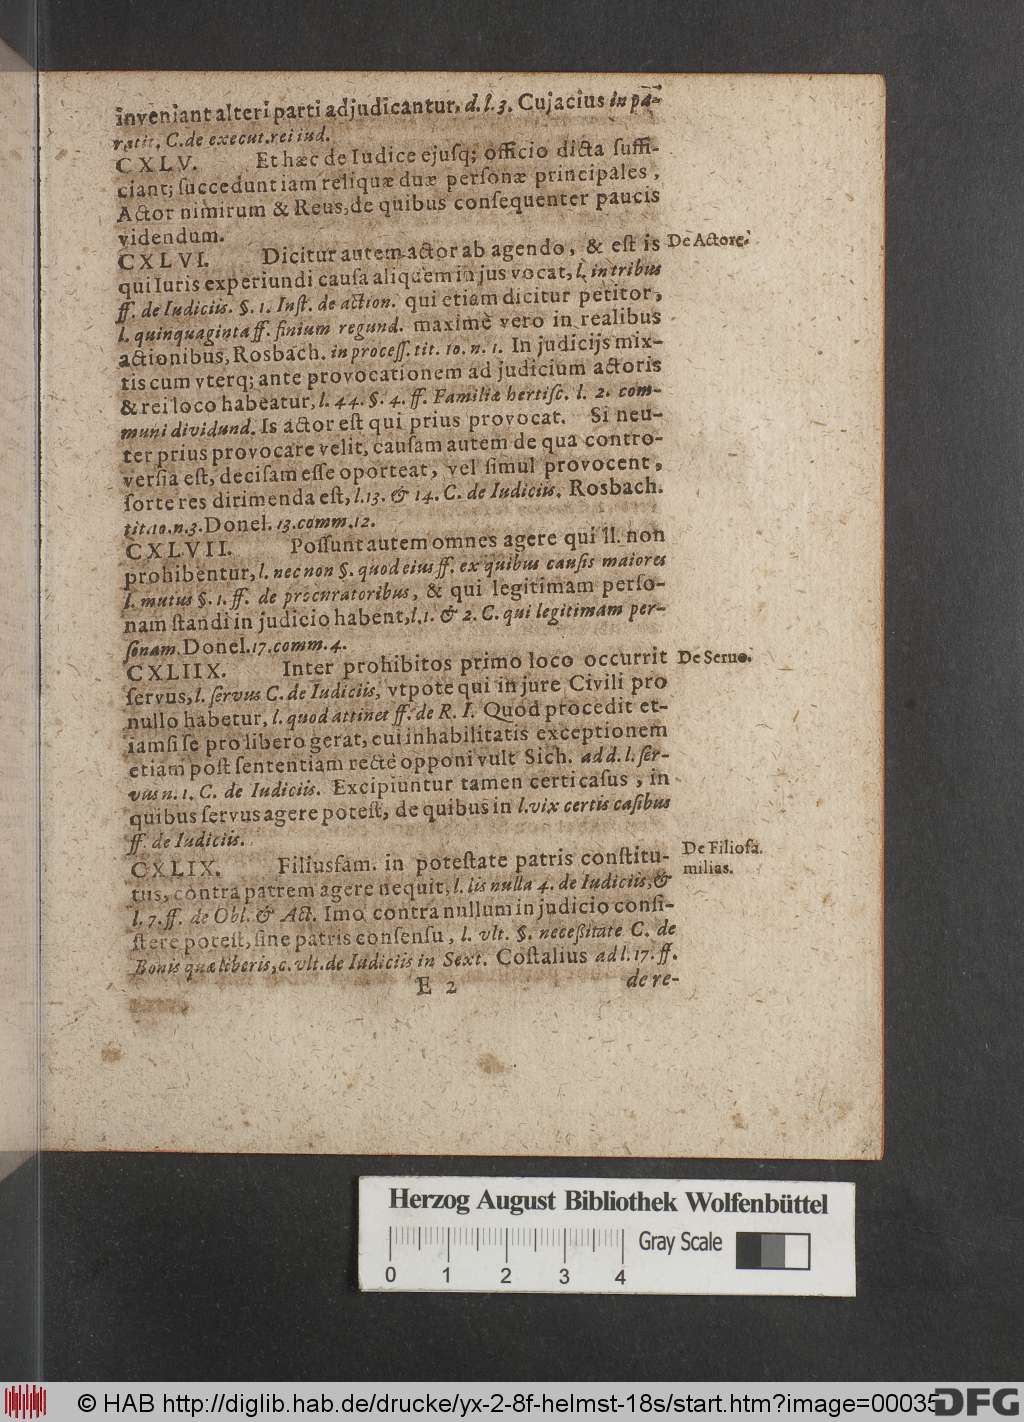 inveniant alteri parti adjudicantur, d. l. 3. Cujacius in pa-
ratit. C. de execut. rei iud.
CXLV. Et hæc de Iudice ejusq; officio dicta suffi-
ciant; succedunt iam reliquæ duæ personæ principales,
Actor nimirum & Reus, de quibus consequenter paucis
videndum.
CXLVI. Dicitur autem actor ab agendo, & est is
De Actore.
qui Iuris experiundi causa aliquem in jus vocat, l. in tribus
ff. de Iudiciis. §. 1. Inst. de action. qui etiam dicitur petitor,
l. quinquaginta ff. finium regund. maximè vero in realibus
actionibus, Rosbach. in process. tit. 10. n. 1. In judicijs mix-
tis cum vterq; ante provocationem ad judicium actoris
& rei loco habeatur, l. 44. §. 4. ff. Familiæ hertisc. l. 2. com-
muni dividund. Is actor est qui prius provocat. Si neu-
ter prius provocare velit, causam autem de qua contro-
versia est, decisam esse oporteat, vel simul provocent,
sorte res dirimenda est, l. 13. & 14. C. de Iudiciis. Rosbach.
tit. 10. n. 3. Donel. 13. comm. 12.
CXLVII. Possunt autem omnes agere qui ll. non
prohibentur, l. nec non §. quod eius ff. ex quibus causis maiores
l. mutus §. 1. ff. de procuratoribus, & qui legitimam perso-
nam standi in judicio habent, l. 1. & 2. C. qui legitimam per-
sonam. Donel. 17. comm. 4.
CXLIIX. Inter prohibitos primo loco occurrit
De Servo.
servus, l. servus C. de Iudiciis, vtpote qui in jure Civili pro
nullo habetur, l. quod attinet ff. de R. I. Quod procedit et-
iamsi se pro libero gerat, cui inhabilitatis exceptionem
etiam post sententiam recte opponi vult Sich. ad d. l. ser-
vus n. 1. C. de Iudiciis. Excipiuntur tamen certi casus, in
quibus servus agere potest, de quibus in l. vix certis casibus
ff. de Iudiciis.
CXLIX. Filiusfam. in potestate patris constitu-
De Filiofa.
milias.
tus, contra patrem agere nequit, l. lis nulla 4. de Iudiciis, &
l. 7. ff. de Obl. & Act. Imo contra nullum in judicio consi-
stere potest, sine patris consensu, l. vlt. §. necessitate C. de
Bonis quæ liberis, c. vlt. de Iudiciis in Sext. Costalius ad l. 17. ff.
E 2 de re-
Herzog August Bibliothek Wolfenbüttel
Gray Scale
0 1 2 3 4
© HAB http://diglib.hab.de/drucke/yx-2-8f-helmst-18s/start.htm?image=00035
DFG